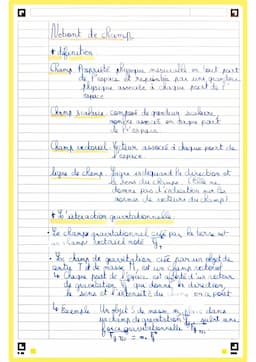 Notion de champ
* définition
Champ Propriété physique mesurable en tout point
de l'espace et représentée par une grandeur
physique associée à chaque point de l'
espace
Champ scalaire : composé de grandeur scalaire,
nombre associé en chaque point
de l'espace
Champ vectoriel : Vecteur associé à chaque point de
l'espace.
ligne de champ : ligne indiquant la direction et
le sens du champs. (Elle ne
donne pas d'indication sur les
normes de vecteurs du champ)
* L'interaction gravitationnelle :
• Le champ gravitationnel créé par la terre est
un champ vectoriel noté
• Le champ de gravitation créé par un objet de
centre T et de masse M, est un champ vectoriel
chaque point de l'espace est associé d'un vecteur
de gravitation qui donne la direction,
le sens et l'intensité du champ en ce point
Exemple : Un objet S de masse m, placé dans
un champ de gravitation subit une
force gravitationnelle